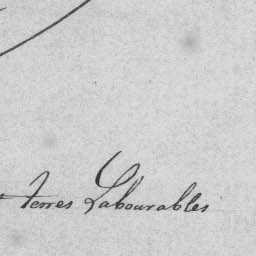 terres Labourables